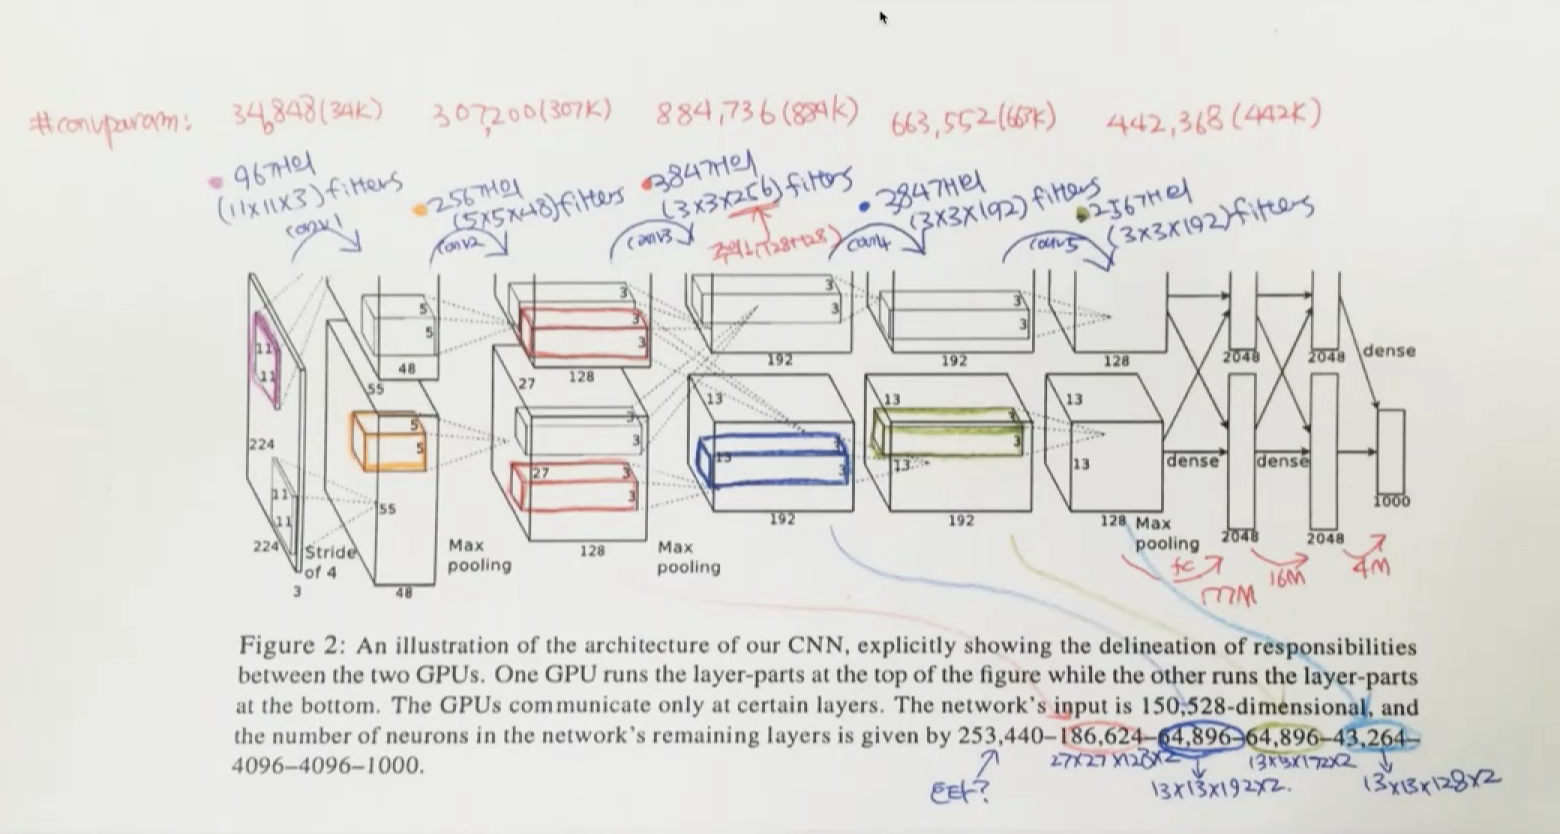 #convparam: 34,848(34K) 307,200(307K) 884,736(884K) 663,552(663K) 442,368(442K)
96개의 (11x11x3) filters
conv1
256개의 (5x5x48) filters
conv2
384개의 (3x3x256) filters
conv3
주의!(128+128)
384개의 (3x3x192) filters
conv4
256개의 (3x3x192) filters
conv5
11
11
224
11
11
224
3
Stride
of 4
5
5
48
55
5
5
55
48
Max
pooling
3
3
3
128
27
3
3
27
3
3
128
Max
pooling
3
3
192
13
3
13
3
192
3
3
192
13
3
3
13
192
128
13
13
128
Max
pooling
2048
2048
dense
dense
dense
2048
2048
1000
fc
177M
16M
4M
Figure 2: An illustration of the architecture of our CNN, explicitly showing the delineation of responsibilities
between the two GPUs. One GPU runs the layer-parts at the top of the figure while the other runs the layer-parts
at the bottom. The GPUs communicate only at certain layers. The network's input is 150,528-dimensional, and
the number of neurons in the network's remaining layers is given by 253,440–186,624–64,896–64,896–43,264–
4096–4096–1000.
오타?
27x27x128x2
13x13x192x2.
13x13x192x2
13x13x128x2